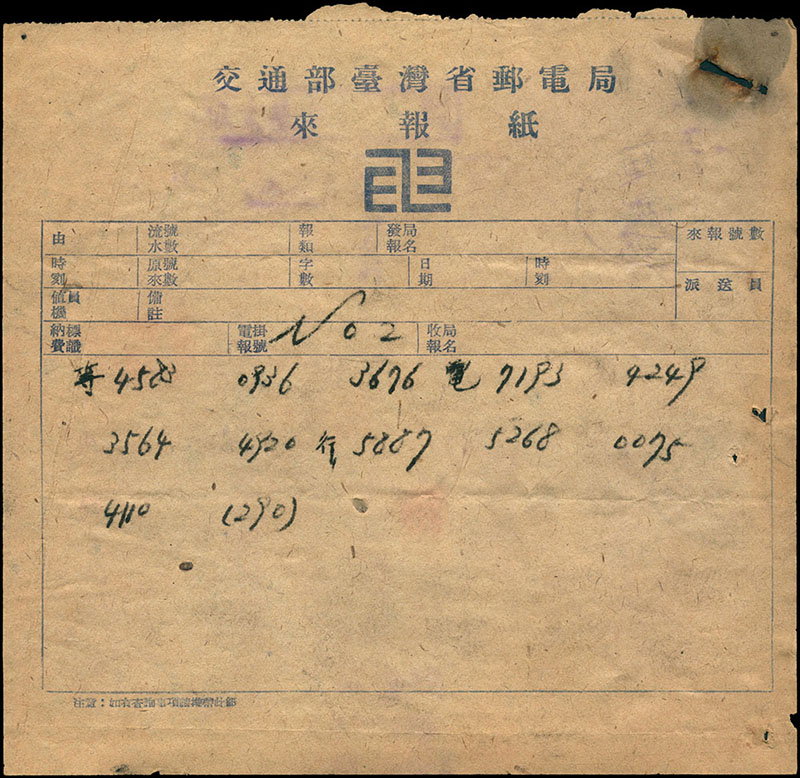 交通部臺灣省郵電局
來報紙
由 流水號數 報類 發報局名 來報號數
時刻 原來號數 字數 日期 時刻 派送員
值機員 備註
納費標識 電報掛號 No 2 收報局名
4583 0936 3676 電 7193 4249
3564 4920 行 5887 5268 0075
4110 (290)